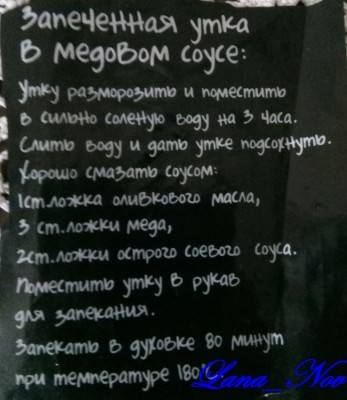 Запеченная утка
в медовом соусе:
Утку разморозить и поместить
в сильно соленую воду на 3 часа.
Слить воду и дать утке подсохнуть.
Хорошо смазать соусом:
1ст.ложка оливкового масла,
3 ст.ложки меда,
2ст.ложки острого соевого соуса.
Поместить утку в рукав
для запекания.
Запекать в духовке 80 минут
при температуре 180
Lana_Nov